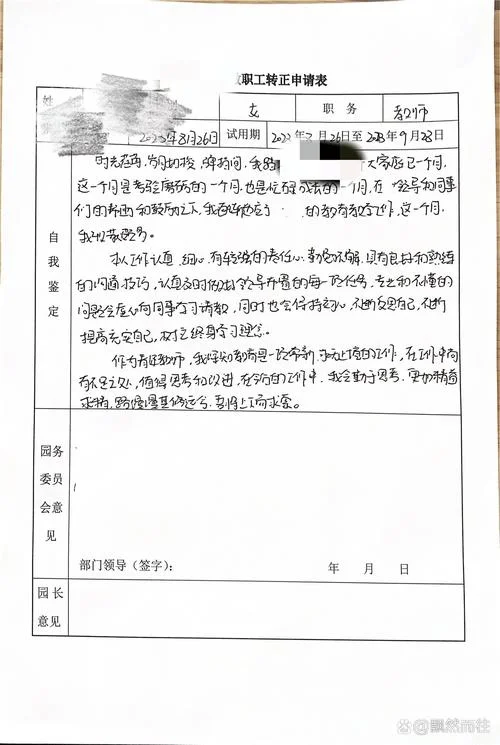 职工转正申请表
姓
女 职务 教师
2023年8月26日 试用期 26日至2023年9月28日
时光荏苒,岁月如梭,转瞬间,我 大家庭已一个月,
这一个月是考验磨砺的一个月,也是 的一个月,在 领导和同事
们的帮助和鼓励之下,我 适应了 的教育教学工作,这一个月,
我
自我鉴定
本人工作认真、细心,有较强的责任心, 不懈,具有良好和熟练
的沟通技巧,认真及时做好领导布置的每一项任务,专业和不懂的
问题会虚心向同事学习请教,同时也会保持初心,不断反思自己,不断
提高充实自己,树立终身学习理念。
作为 教师,我深知教育是一项常新、 的工作,在工作中尚
有不足之处,值得思考和改进,在今后的工作中,我会勤于思考,更加精益
求精,路漫漫其修远兮,吾将上下而求索。
园务委员会意见
部门领导(签字): 年 月 日
园长意见
百家号@飘然而往